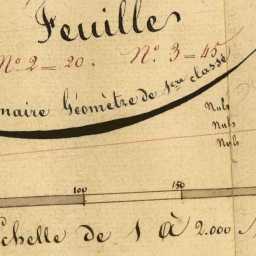 Feuille
N° 2 = 20. N° 3 = 45
naire Géomètre de 1ere classe
Nuls
Nuls
Nuls
100 150
Echelle de 1 à 2.000